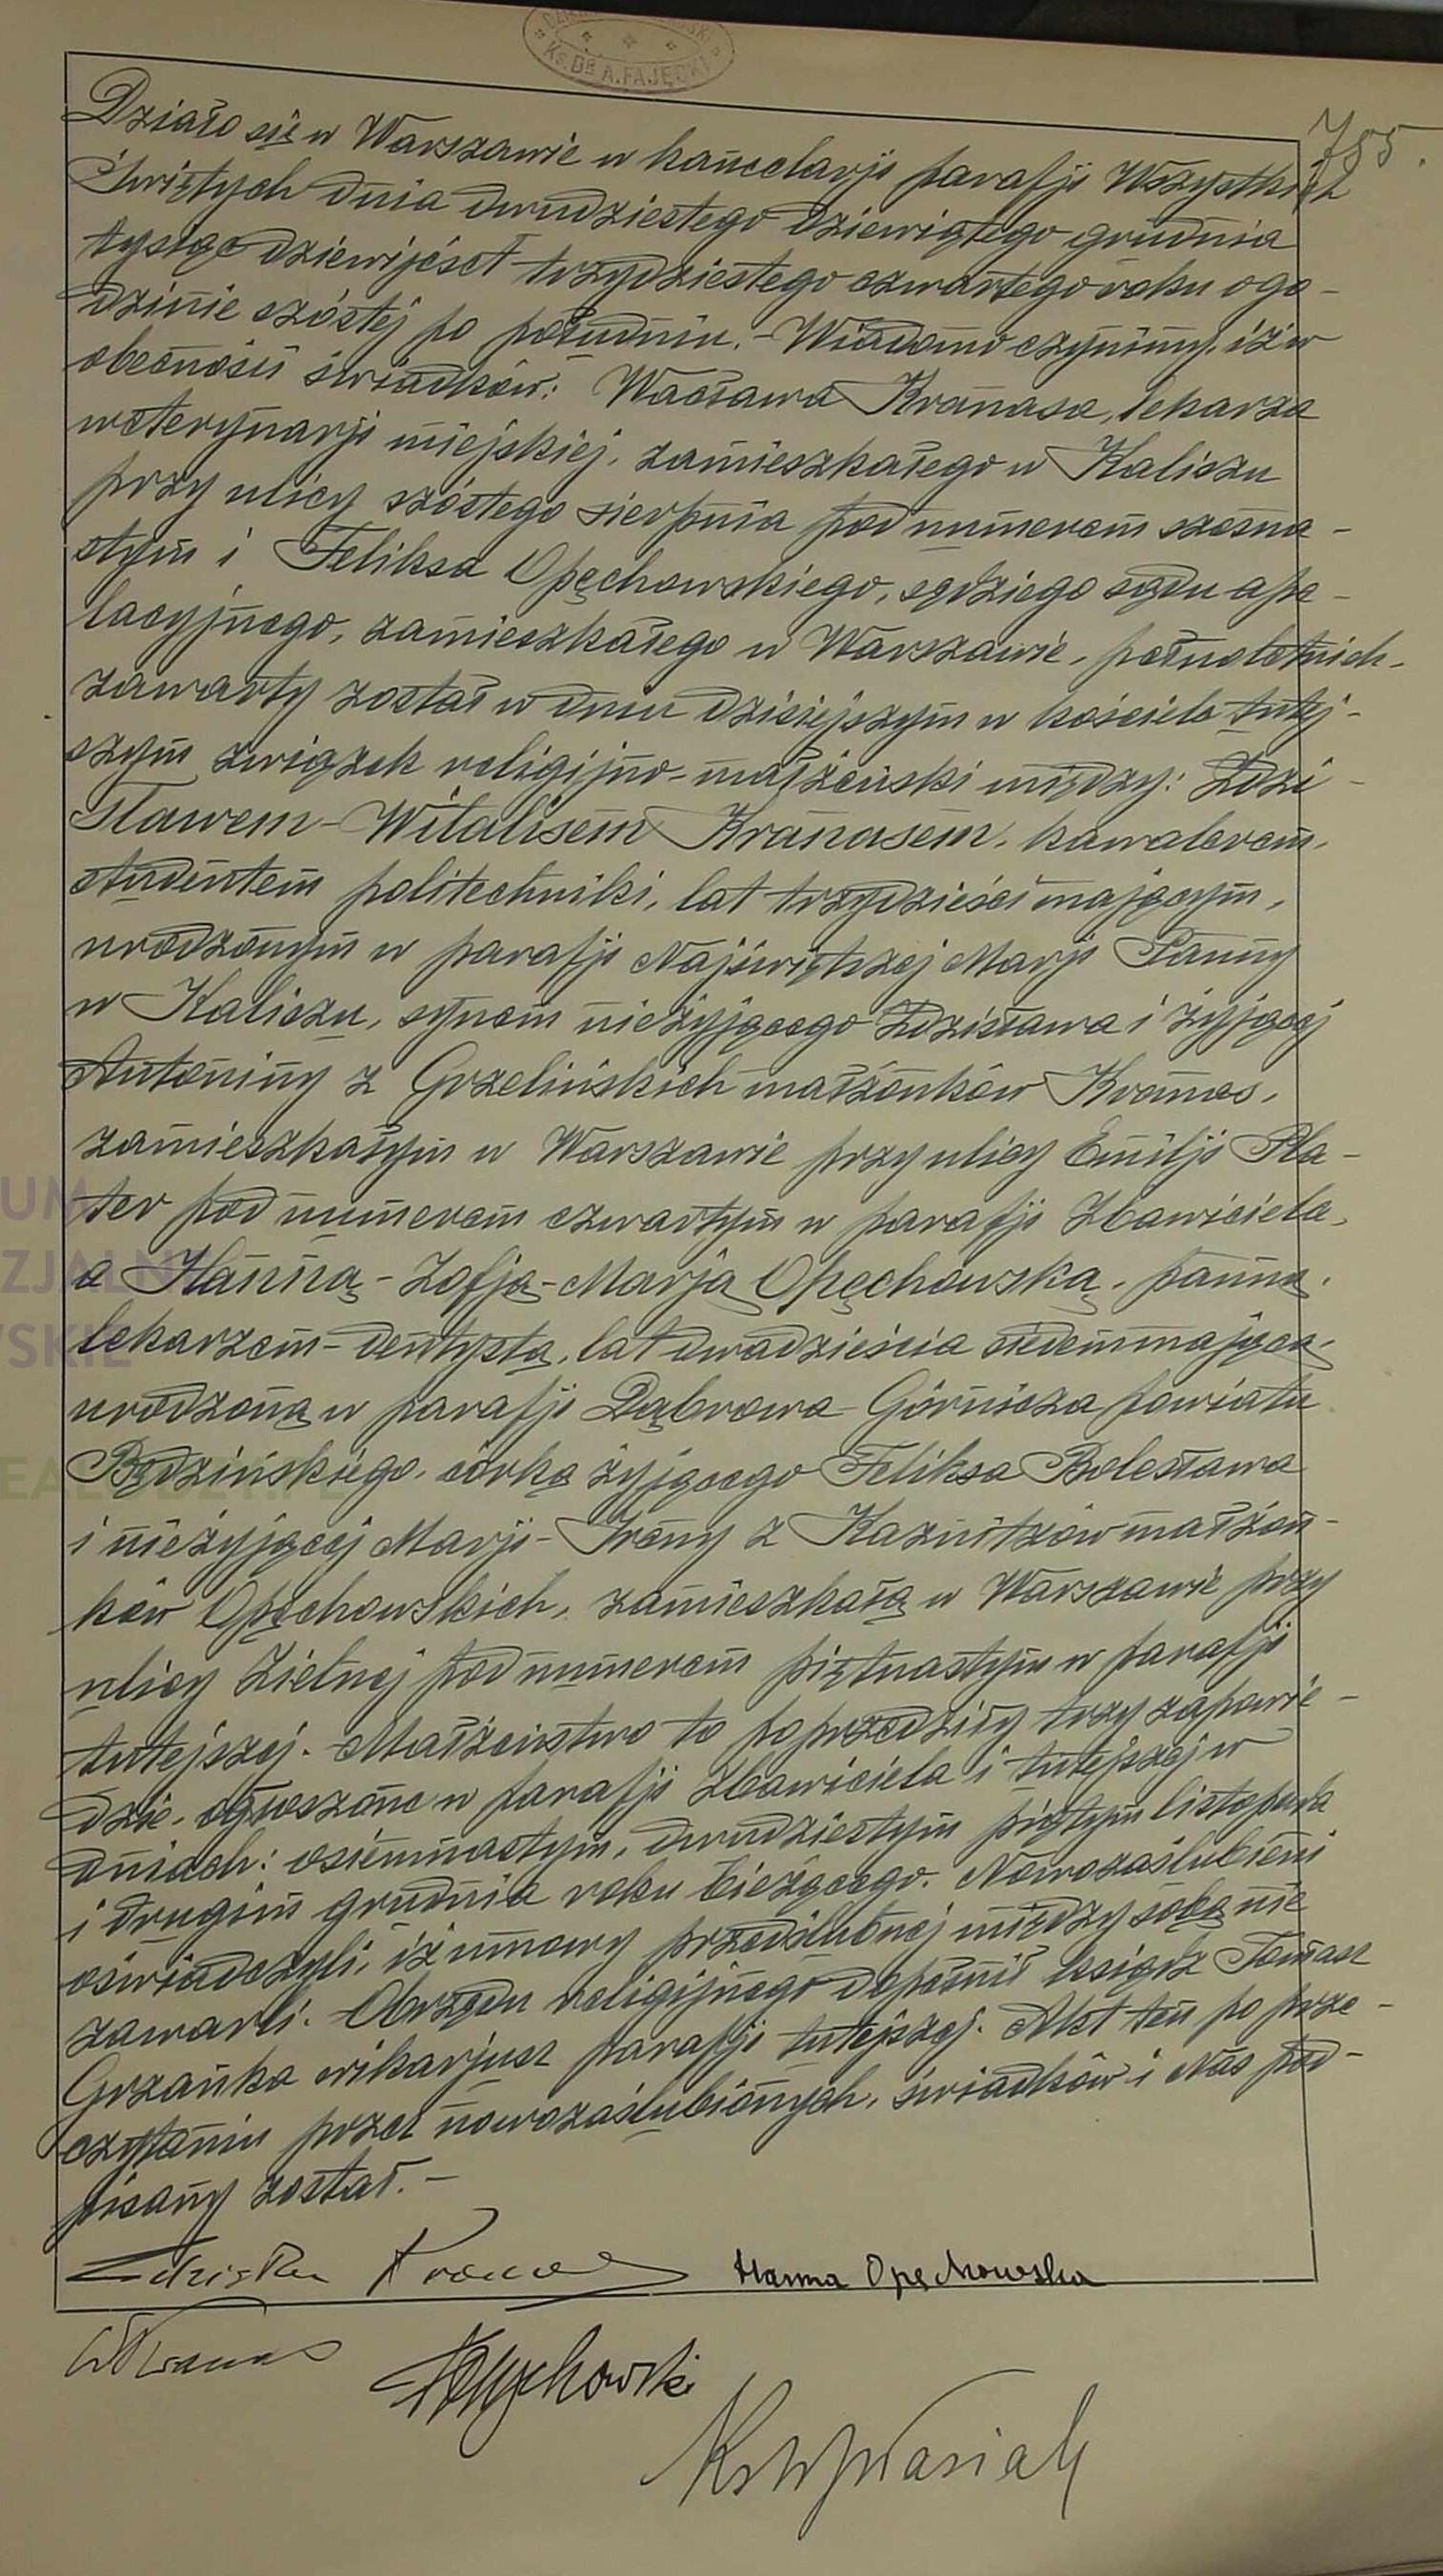 Ks. Dr. A. FAJĘCKI
785.
Działo się w Warszawie w kancelarji parafji Wszystkich
Świętych dnia dwudziestego dziewiątego grudnia
tysiąc dziewięćset trzydziestego czwartego roku o go-
dzinie szóstej po południu. - Wiadomo czynimy, iż w
obecności świadków: Wacława Kranasa, lekarza
weterynarji miejskiej, zamieszkałego w Kaliszu
przy ulicy szóstego sierpnia pod numerem szesna-
stym i Feliksa Opęchowskiego, sędziego sądu ape-
lacyjnego, zamieszkałego w Warszawie, pełnoletnich,
zawarty został w dniu dzisiejszym w kościele tutej-
szym związek religijno-małżeński między: Zdzi-
sławem-Witalisem Kranasem, kawalerem,
studentem politechniki, lat trzydzieści mającym,
urodzonym w parafji Najświętszej Marji Panny
w Kaliszu, synem nieżyjącego Zdzisława i żyjącej
Antoniny z Grzelińskich małżonków Kranas,
zamieszkałym w Warszawie przy ulicy Emilji Pla-
ter pod numerem czwartym w parafji Zbawiciela,
a Hanną-Zofją-Marją Opęchowską, panną,
lekarzem-dentystą, lat dwadzieścia siedem mającą,
urodzoną w parafji Dąbrowa-Górnicza powiatu
Będzińskiego, córką żyjącego Feliksa Bolesława
i nieżyjącej Marji-Ireny z Kaznitzów małżon-
ków Opęchowskich, zamieszkałą w Warszawie przy
ulicy Zielnej pod numerem piętnastym w parafji
tutejszej. Małżeństwo to poprzedziły trzy zapowie-
dzie, ogłoszone w parafji Zbawiciela i tutejszej w
dniach: osiemnastym, dwudziestym piątym listopada
i drugim grudnia roku bieżącego. Nowozaślubieni
oświadczyli, iż umowy przedślubnej między sobą nie
zawarli. Obrzędu religijnego dopełnił ksiądz Tomasz
Grzanka wikarjusz parafji tutejszej. Akt ten po prze-
czytaniu przez nowozaślubionych, świadków i Nas pod-
pisany został. -
Zdzisław Kranas Hanna Opęchowska
W Kranas
FOpęchowski